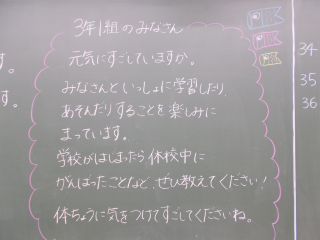 3年1組のみなさん
元気にすごしていますか。
みなさんといっしょに学習したり、
あそんだりすることを楽しみに
まっています。
学校がはじまったら休校中に
がんばったことなど、ぜひ教えてください！
体ちょうに気をつけてすごしてくださいね。
す。
す。
34
35
36